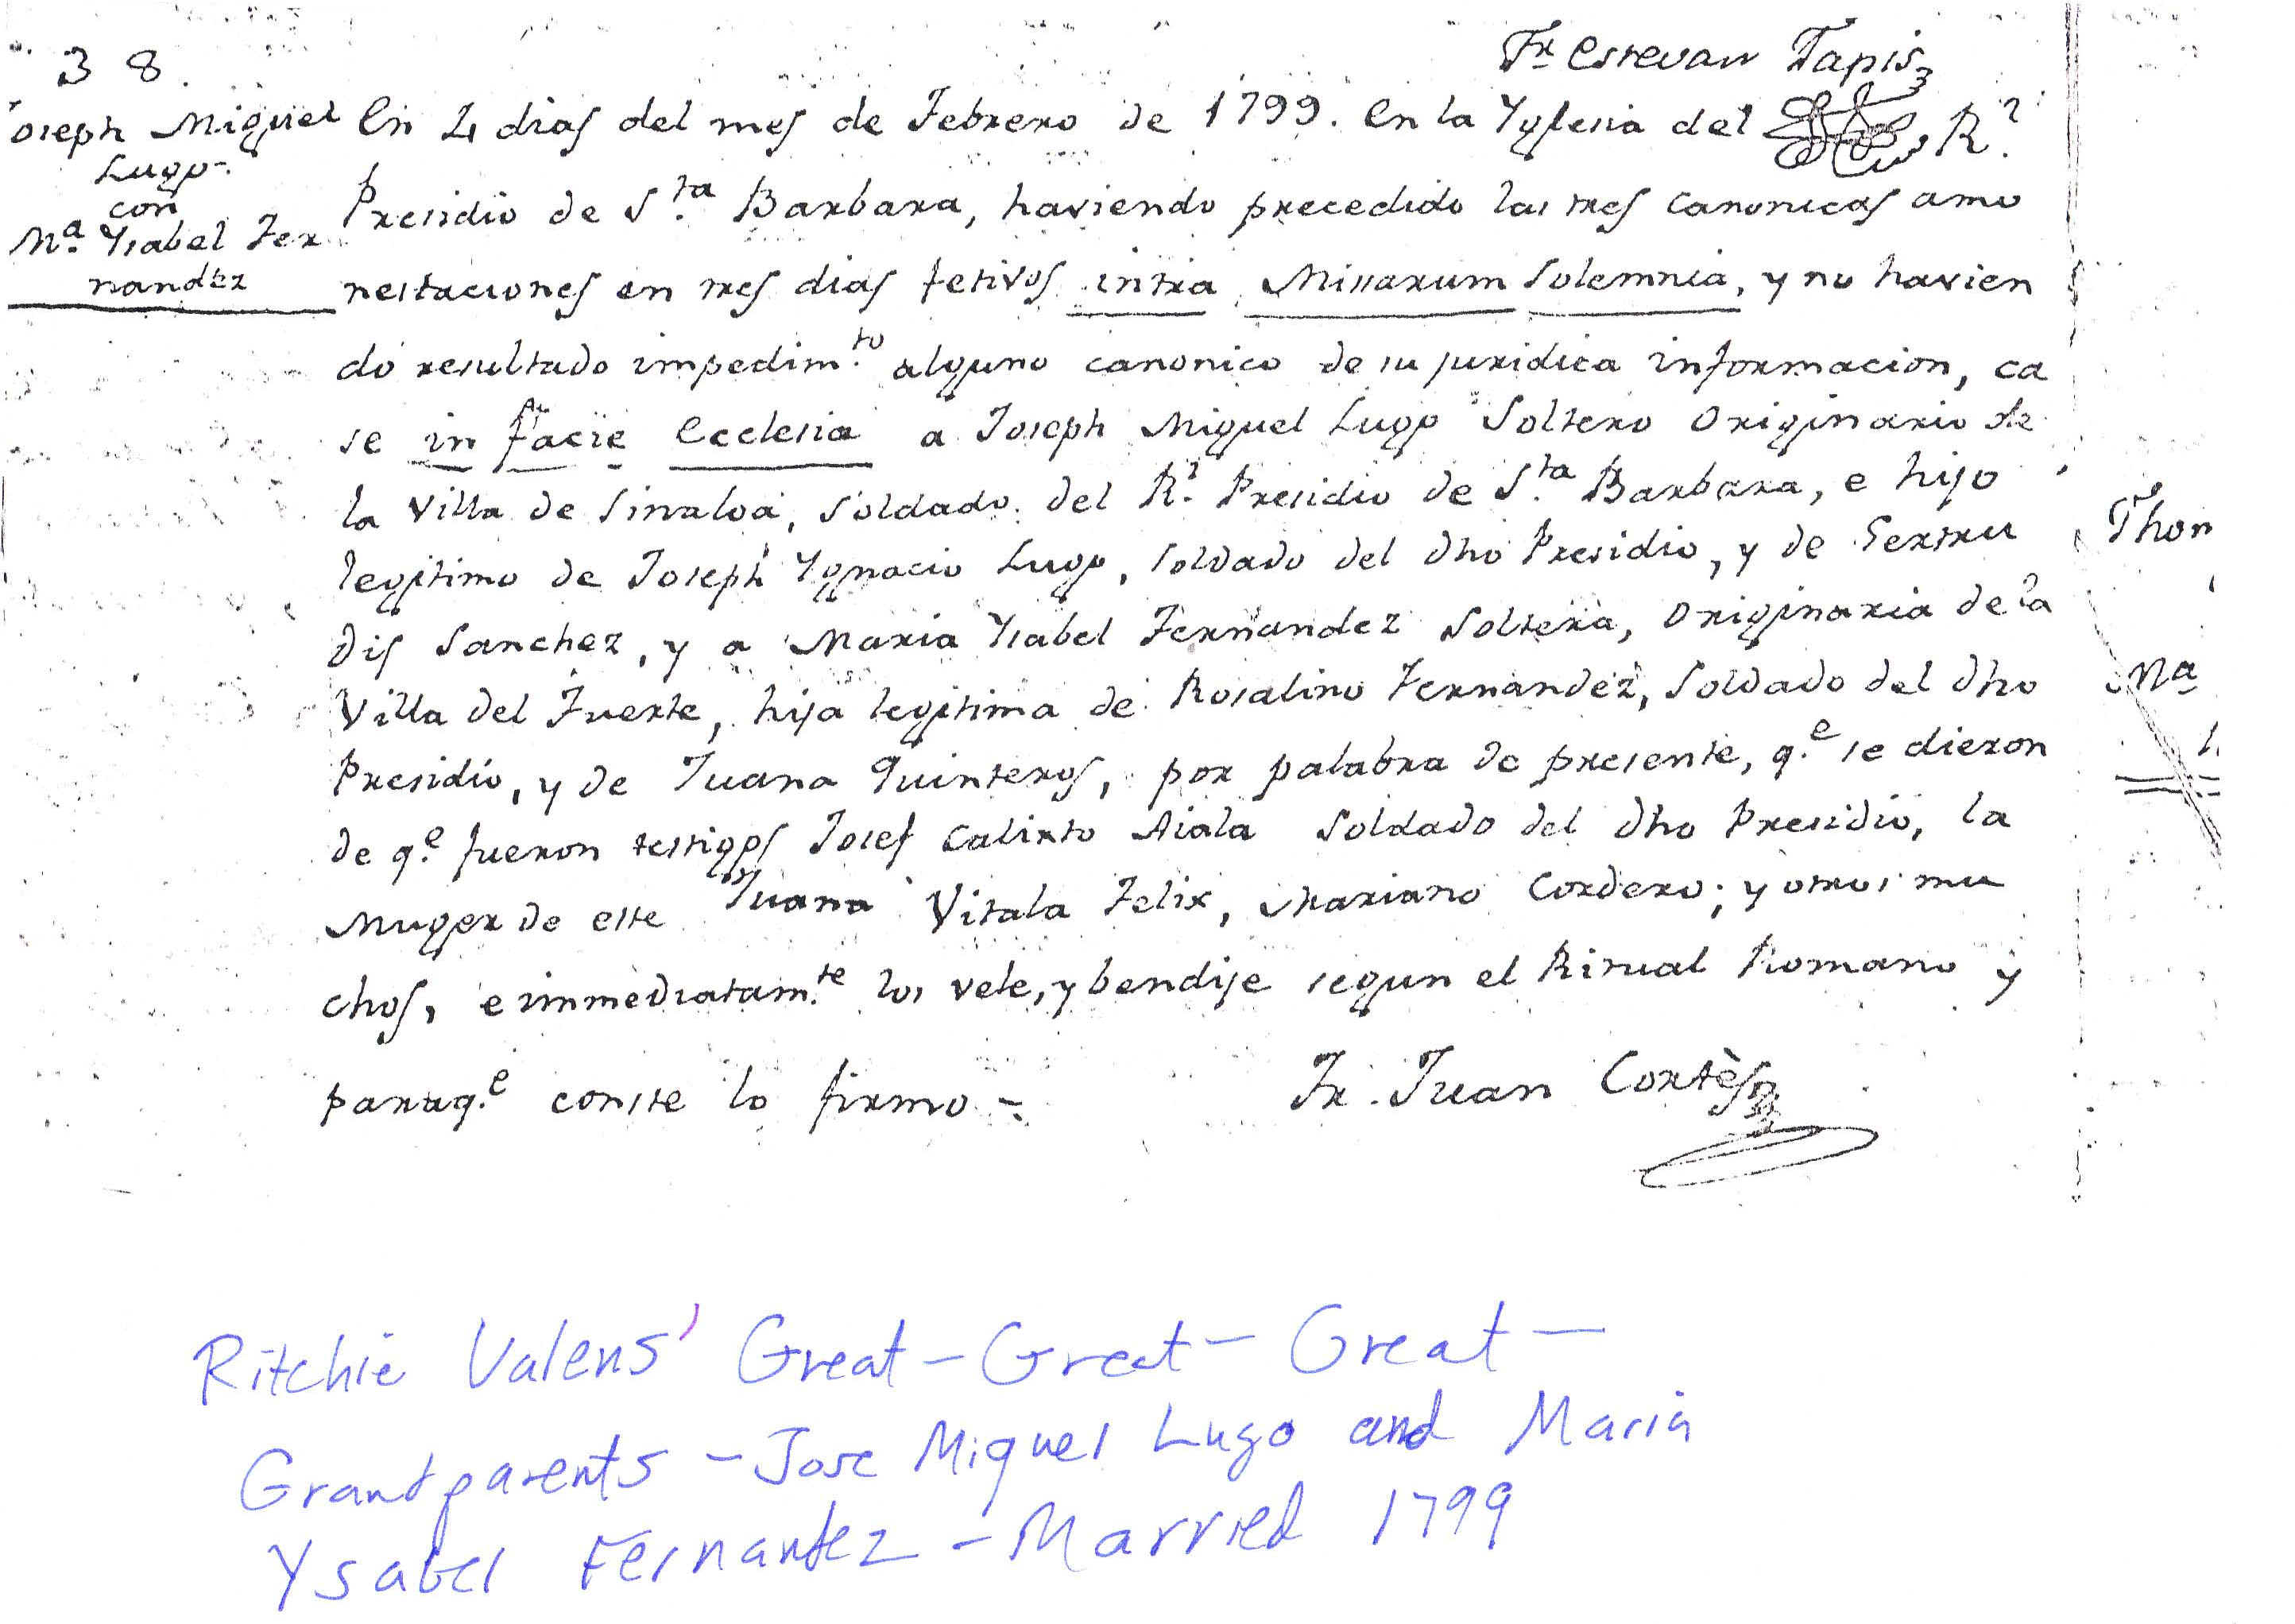 Fr. Estevan Tapis
38.
Joseph Miguel
Lugo.
con
Ma. Ysabel Fer
nandez
En 4 dias del mes de Febrero de 1799. en la Yglesia del Rl.
Presidio de Sta. Barbara, haviendo precedido las tres canonicas amo
nestaciones en tres dias fetivos intra Missarum Solemnia, y no havien
do resultado impedimto. alguno canonico de su juridica informacion, ca
se in facie Ecclesia a Joseph Miguel Lugo Soltero Originario de
la Villa de Sinaloa, Soldado del Rl. Presidio de Sta. Barbara, e hijo
legitimo de Joseph Ygnacio Lugo, soldado del dho Presidio, y de Gertru
dis Sanchez, y a Maria Ysabel Fernandez Soltera, Originaria de la
Villa del Fuerte, hija legitima de Rosalino Fernandez, Soldado del dho
Presidio, y de Juana Quinteros, por palabra de presente, q.e se dieron
de q.e fueron testigos Josef Calixto Aiala Soldado del dho Presidio, la
Muger de este Juana Vitala Felix, Mariano Cordero; y otros mu
chos, e immediatam.te los vele, y bendije segun el Ritual Romano y
paraq.e conste lo firmo
Fr. Juan Cortès
Thon
Ma
Ritchie Valens' Great-Great-Great-
Grandparents - Jose Miguel Lugo and Maria
Ysabel Fernandez - Married 1799